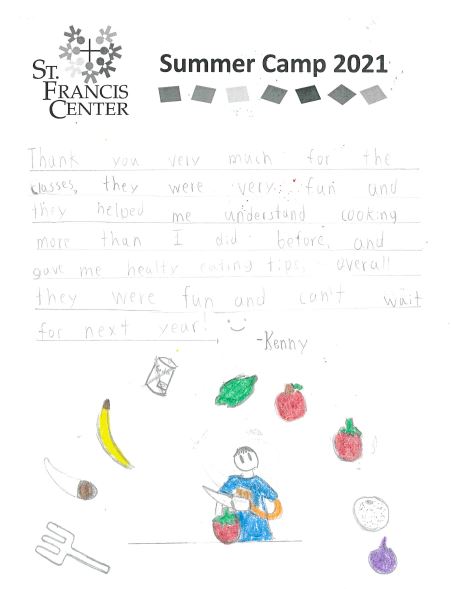 ST.
FRANCIS
CENTER
Summer Camp 2021
Thank you very much for the
classes, they were very fun and
they helped me understand cooking
more than I did before, and
gave me healty eating tips. overall
they were fun and can't wait
for next year!
-Kenny